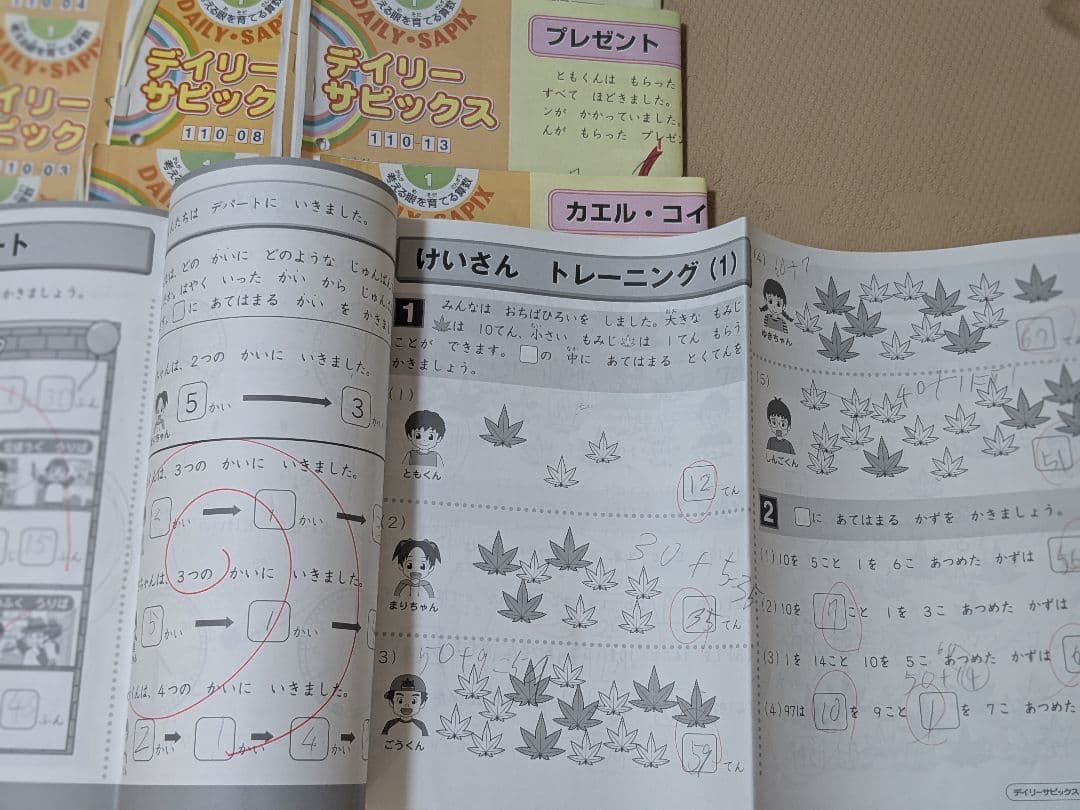 110-04
DAILY・SAPIX
110-03
1
考える眼を育てる算数
DAILY・SAPIX
デイリー
サピック
110-08
1
考える眼を育てる算数
DAILY・SAPIX
デイリー
サピックス
110-13
プレゼント
ともくんは もらった
すべて ほどきました。
ンが かかっていました。
んが もらった プレゼン
1
考える眼を育てる算数
カエル・コイ
ート
かきましょう。
んたちは デパートに いきました。
どの かいに どのような じゅんばん
はやく いった かい から じゅん
□に あてはまる かい を かきま
ゃんは、2つの かいに いきました。
5 かい → 3
んは、3つの かいに いきました。
2 かい → 1 かい →
ちゃんは、3つの かいに いきました。
5 かい → 1 かい →
くんは、4つの かいに いきました。
2 かい → 1 かい → 4 →
けいさん トレーニング(1)
1 みんなは おちばひろいを しました。大きな もみじ
は 10てん、小さい もみじ は 1てん もらう
ことが できます。□の 中に あてはまる とくてんを
かきましょう。
(1)
ともくん
12 てん
(2)
30+5
まりちゃん
35 てん
3)
50+9
ごうくん
59 てん
(4)
ゆきちゃん
67
5)
40+11
しんごくん
51
2 □に あてはまる かずを かきましょう。
(1)10を 5こと 1を 6こ あつめた かずは
(2)10を こと 1を 3こ あつめた かずは
(3)1を 14こと 10を 5こ あつめた かずは
(4)97は 10 を 9こと を 7こ あつめた
デイリーサピックス